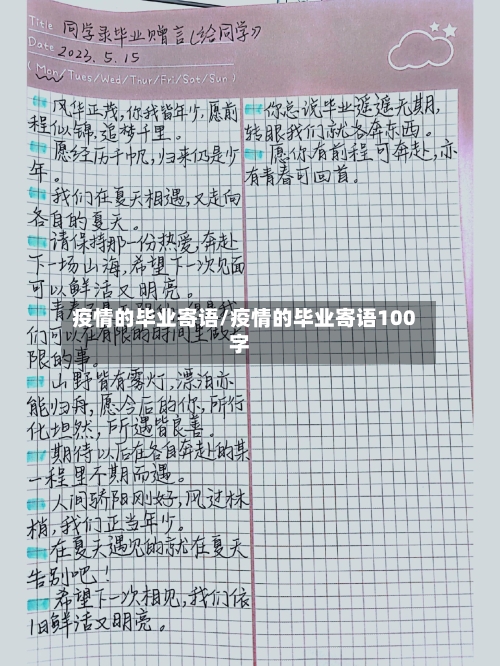 Title 同学录毕业赠言《给同学》
Date 2023.5.15
(Mon/Tues/Wed/Thur/Fri/Sat/Sun)
风华正茂，你我皆年少，愿前
程似锦，追梦千里。
愿经历千帆，归来仍是少
年。
我们在夏天相遇，又走向
各自的夏天。
请保持那一份热爱，奔赴
下一场山海，希望下一次见面
可以鲜活又明亮。
青春
们可以在有限的时间里做
限的事。
山野皆有雾灯，漂泊亦
能归舟，愿今后的你，所行
化坦然，所遇皆良善。
期待以后在各自奔赴的某
一程里不期而遇。
人间骄阳刚好，风过林
梢，我们正当年少。
在夏天遇见的就在夏天
告别吧！
希望下一次相见，我们依
旧鲜活又明亮。
你总说毕业遥遥无期，
转眼我们就各奔东西。
愿你有前程可奔赴，亦
有青春可回首。
疫情的毕业寄语/疫情的毕业寄语100
字